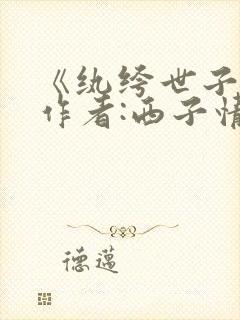 《纨绔世子
作者:西子情
德蓮